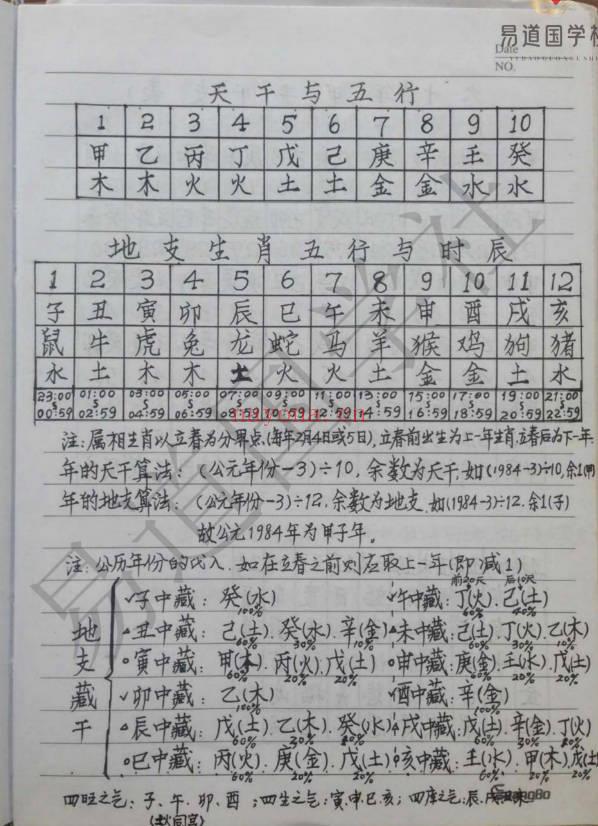 易道国学社
Date
NO.
天干与五行
1 2 3 4 5 6 7 8 9 10
甲 乙 丙 丁 戊 己 庚 辛 壬 癸
木 木 火 火 土 土 金 金 水 水
地支生肖五行与时辰
1 2 3 4 5 6 7 8 9 10 11 12
子 丑 寅 卯 辰 巳 午 未 申 酉 戌 亥
鼠 牛 虎 兔 龙 蛇 马 羊 猴 鸡 狗 猪
水 土 木 木 土 火 火 土 金 金 土 水
23:00 01:00 03:00 05:00 07:00 09:00 11:00 13:00 15:00 17:00 19:00 21:00
00:59 02:59 04:59 06:59 08:59 10:59 12:59 14:59 16:59 18:59 20:59 22:59
注:属相生肖以立春为分界点,(每年2月4日或5日),立春前出生为上一年生肖,立春后为下一年.
年的天干算法:(公元年份-3)÷10,余数为天干,如(1984-3)÷10,余1(甲)
年的地支算法:(公元年份-3)÷12,余数为地支.如(1984-3)÷12.余1(子)
故公元1984年为甲子年。
注:公历年份的代入.如在立春之前则应取上一年(即减1)
前20天 后10天
地支藏干
子中藏:癸(水) 午中藏:丁(火).己(土)
100% 60% 40%
丑中藏:己(土).癸(水).辛(金) 未中藏:己(土).丁(火).乙(木)
60%
寅中藏:甲(木).丙(火).戊(土) 申中藏:庚(金).壬(水).戊(土)
60% 20% 20% 60% 20% 20%
卯中藏:乙(木) 酉中藏:辛(金)
100% 100%
辰中藏:戊(土).乙(木).癸(水) 戌中藏:戊(土).辛(金).丁(火)
60% 30% 60% 30%
巳中藏:丙(火).庚(金).戊(土) 亥中藏:壬(水).甲(木).戊(土)
60% 20% 20% 60% 20% 20%
四旺之气:子、午.卯、酉;四生之气:寅.申.巳.亥;四库之气:辰.戌.丑.未
易道国学社